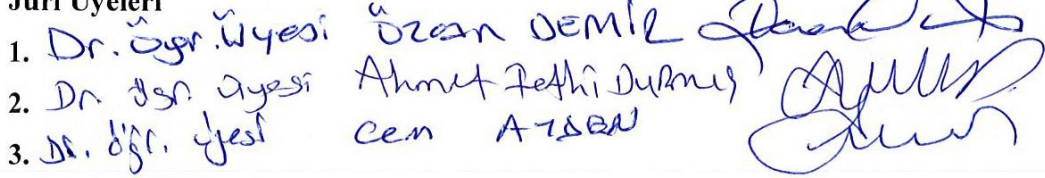 Jüri Üyeleri
1. Dr. Öğr. Üyesi Özcan DEMİR
2. Dr. Öğr. Üyesi Ahmet Fethi Durmuş
3. Dr. Öğr. Üyesi Cem